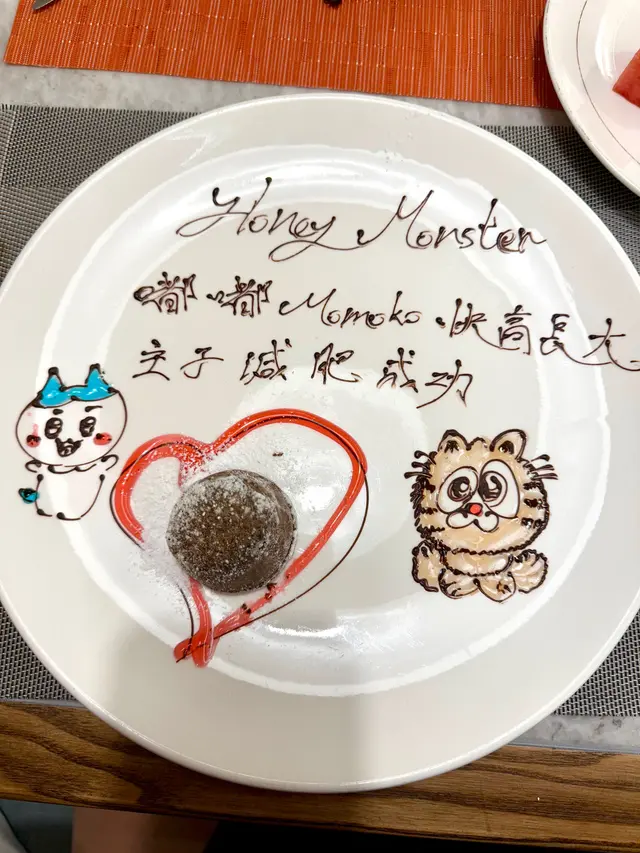 Honey Monster
嘟嘟 Momoko 快高長大
主子減肥成功